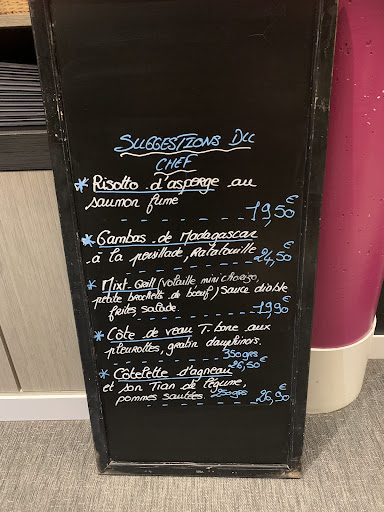 SUGGESTIONS DU
CHEF
* Risotto d'asperge au
saumon fume
19,50€
* Gambas de Madagascar
à la persillade, Ratatouille
24,50€
* Mixt Grill (volaille mini chorizo,
petite brochette de bœuf) sauce diable
frites, salade. 19,90€
* Côte de veau T. bone aux
pleurottes, gratin dauphinois.
350grs
26,50€
* Côtelette d'agneau
et son Tian de légume,
pommes sautées. 250grs 26,90€